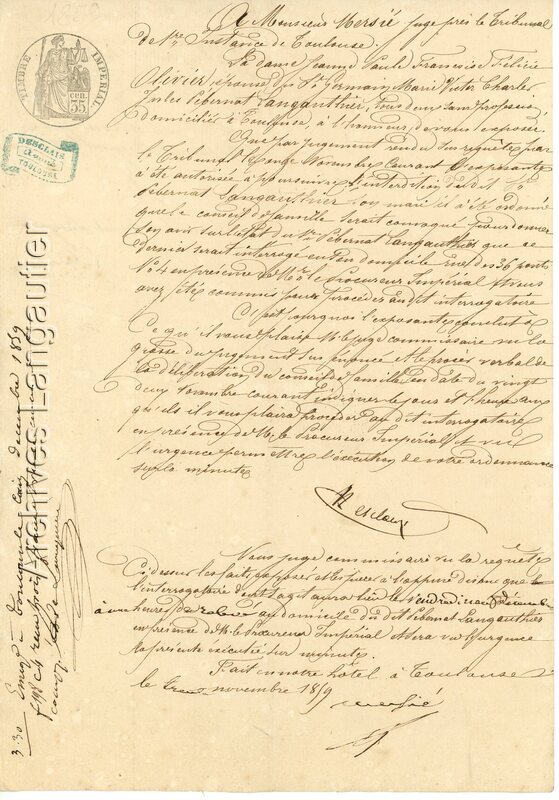 TIMBRE IMPÉRIAL
35 cen
DESCLAIS
Avoué
TOULOUSE
A Monsieur Mersié juge près le Tribunal
de 1re Instance de Toulouse.
La Dame Jeanne Paule Françoise Félicie
Olivier, épouse du Sr Germain Marie Victor Charles
Jules Pébernat Langauthier, tous deux sans profession
domiciliés à Toulouse, à l'honneur de vous exposer.
Que par jugement rendu sur requête par
le Tribunal le onze Novembre courant l'exposante
a été autorisée à poursuivre l'interdiction du dit Sr
Pébernat Langauthier son mari et il a été ordonné
que le conseil de famille serait convoqué pour donner
son avis sur l'état du Sr Pébernat Langauthier que ce
dernier serait interrogé en son domicile rue des 36 ponts
No 4 en présence de Mr le Procureur Impérial et vous
avez été commis pour procéder au dit interrogatoire
C'est pourquoi l'exposante conclut à
Ce qu'il vous plaise Mr le juge commissaire vu la
grosse du jugement sus énoncé et le procès verbal de
la délibération du conseil de famille en date du vingt
deux novembre courant indiquer le jour et l'heure aux
quels il vous plaira procéder au dit interrogatoire
en présence de Mr le Procureur Impérial et vu
l'urgence permettre l'exécution de votre ordonnance
sur la minute
Desclaux
Nous juge commissaire vu la requête
Ci dessus les faits exposés et les pièces à l'appui disons que
l'interrogatoire dont s'agit aura lieu le vendredi neuf décembre
à une heure de relevée au domicile du dit Pébernat Langauthier
en présence de Mr le Procureur Impérial et sera vu l'urgence
la présente exécutée sur minute.
Fait en notre hôtel à Toulouse
le novembre 1859
Mersié
Archives Langautier
Enregistré à Toulouse le trois décembre 1859
3.30